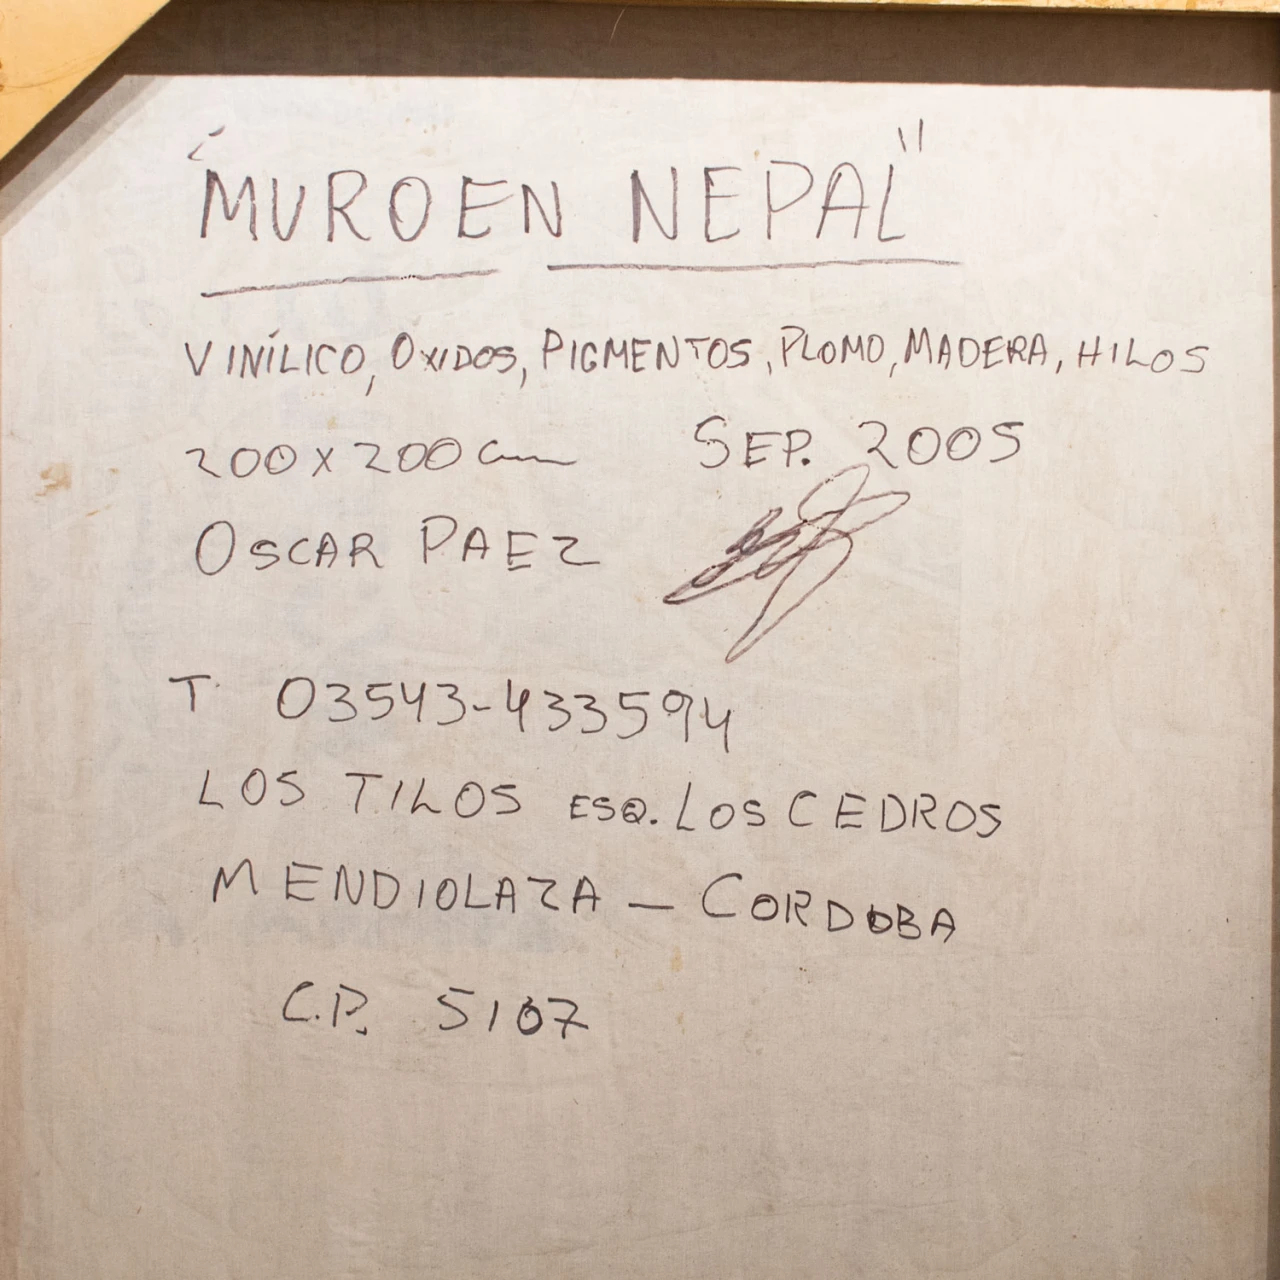 "MURO EN NEPAL"
VINÍLICO, OXIDOS, PIGMENTOS, PLOMO, MADERA, HILOS
200 X 200 cm SEP. 2005
OSCAR PAEZ
T. 03543-433594
LOS TILOS ESQ. LOS CEDROS
MENDIOLAZA — CORDOBA
C.P. 5107